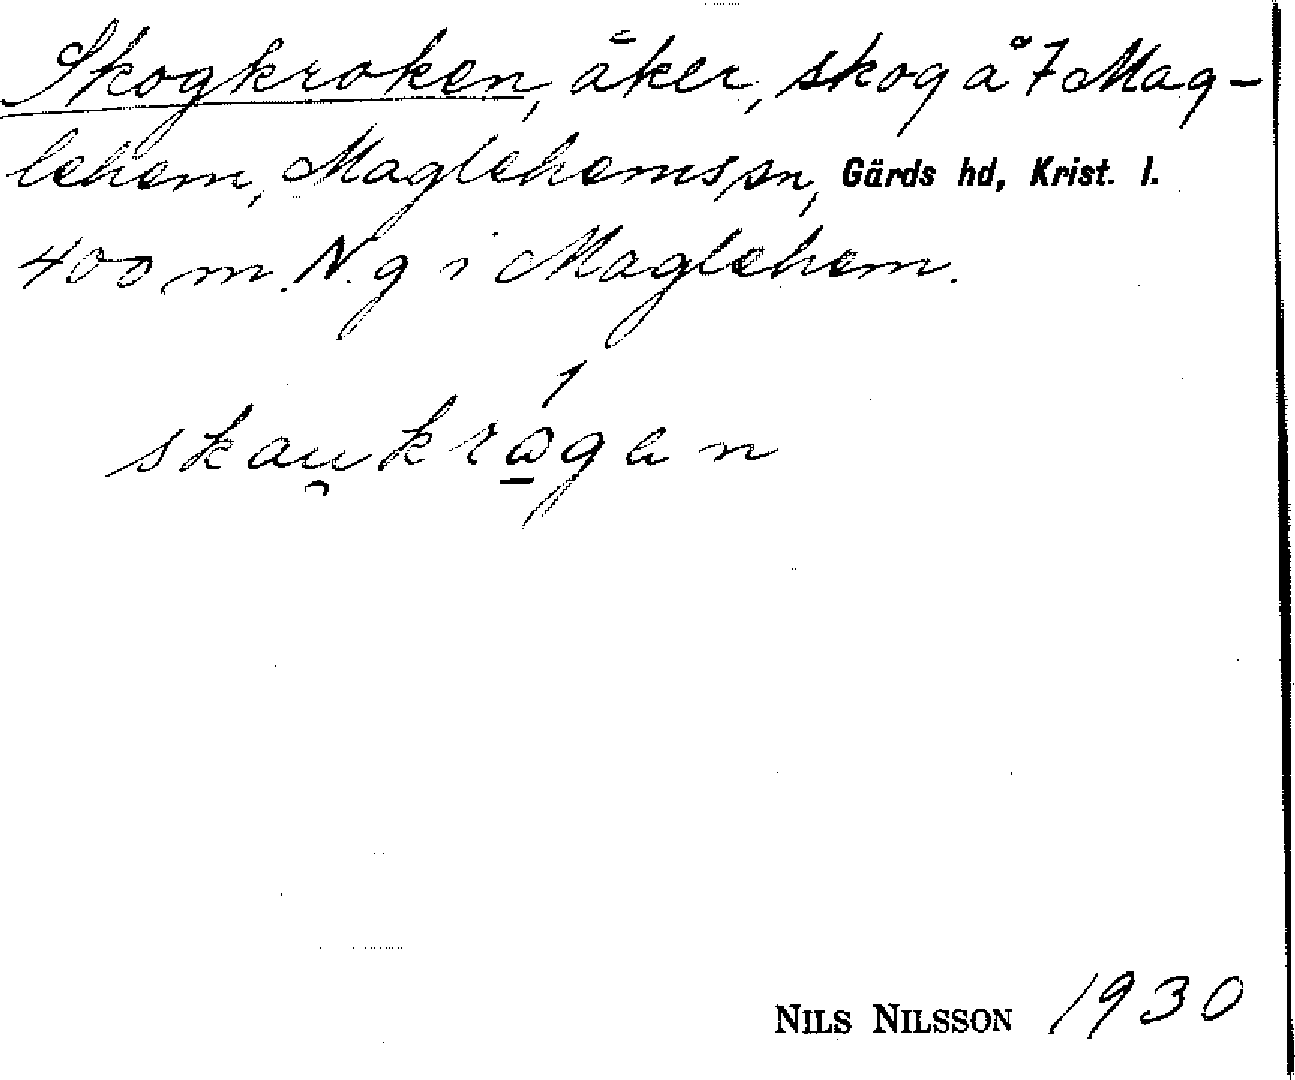 Skogkroken, åker, skog å 7 Mag-
lehem, Maglehems sn, Gärds hd, Krist. l.
400 m. N. g i Maglehem.
skau̯krǻ̱gan
NILS NILSSON 1930